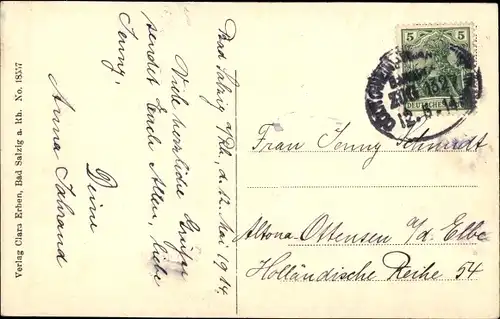 Bad Salzig a/Rh., d. 12. Mai 1914.
Viele herzliche Grüße
sendet Euch Allen, liebe
Jenny,
Deine
Anna
Verlag Clara Erben, Bad Salzig a. Rh. No. 18557
5 5
DEUTSCHES
ZUG 182
12.5.14
Frau Jenny Schmidt
Altona-Ottensen a/d. Elbe
Holländische Reihe 54